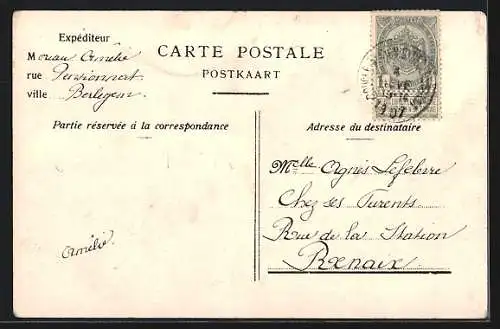 Expéditeur
Moreau Amélie
rue Pensionnat
ville Berlegem
CARTE POSTALE
POSTKAART
Partie réservée à la correspondance
Adresse du destinataire
Melle Agnès Lefebvre
Chez ses Parents
Rue de la Station
Renaix
Amélie